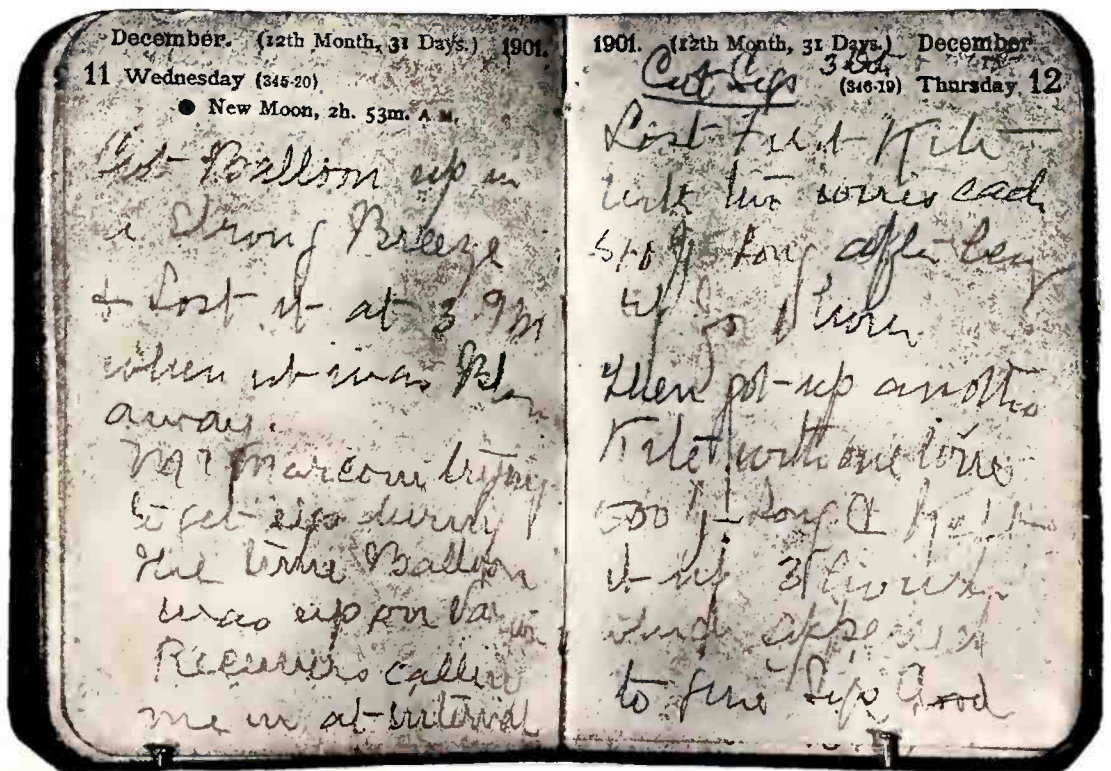 December. (12th Month, 31 Days.) 1901.
11 Wednesday (345-20)
● New Moon, 2h. 53m. A.M.
Got Balloon up in
a Strong Breeze
& Lost it at 3 PM
when it was Blown
away.
Mr Marconi trying
to get sigs during
the time Balloon
was up on Various
Receivers calling
me in at interval
1901. (12th Month, 31 Days.) December
(346-19) Thursday 12
Got Sigs
Lost First Kite
with two wires each
510 ft Long after being
up for 1 hour
then got up another
Kite with one wire
500 ft Long & kept
it up 3 hours
wh appeared
to give Sigs Good